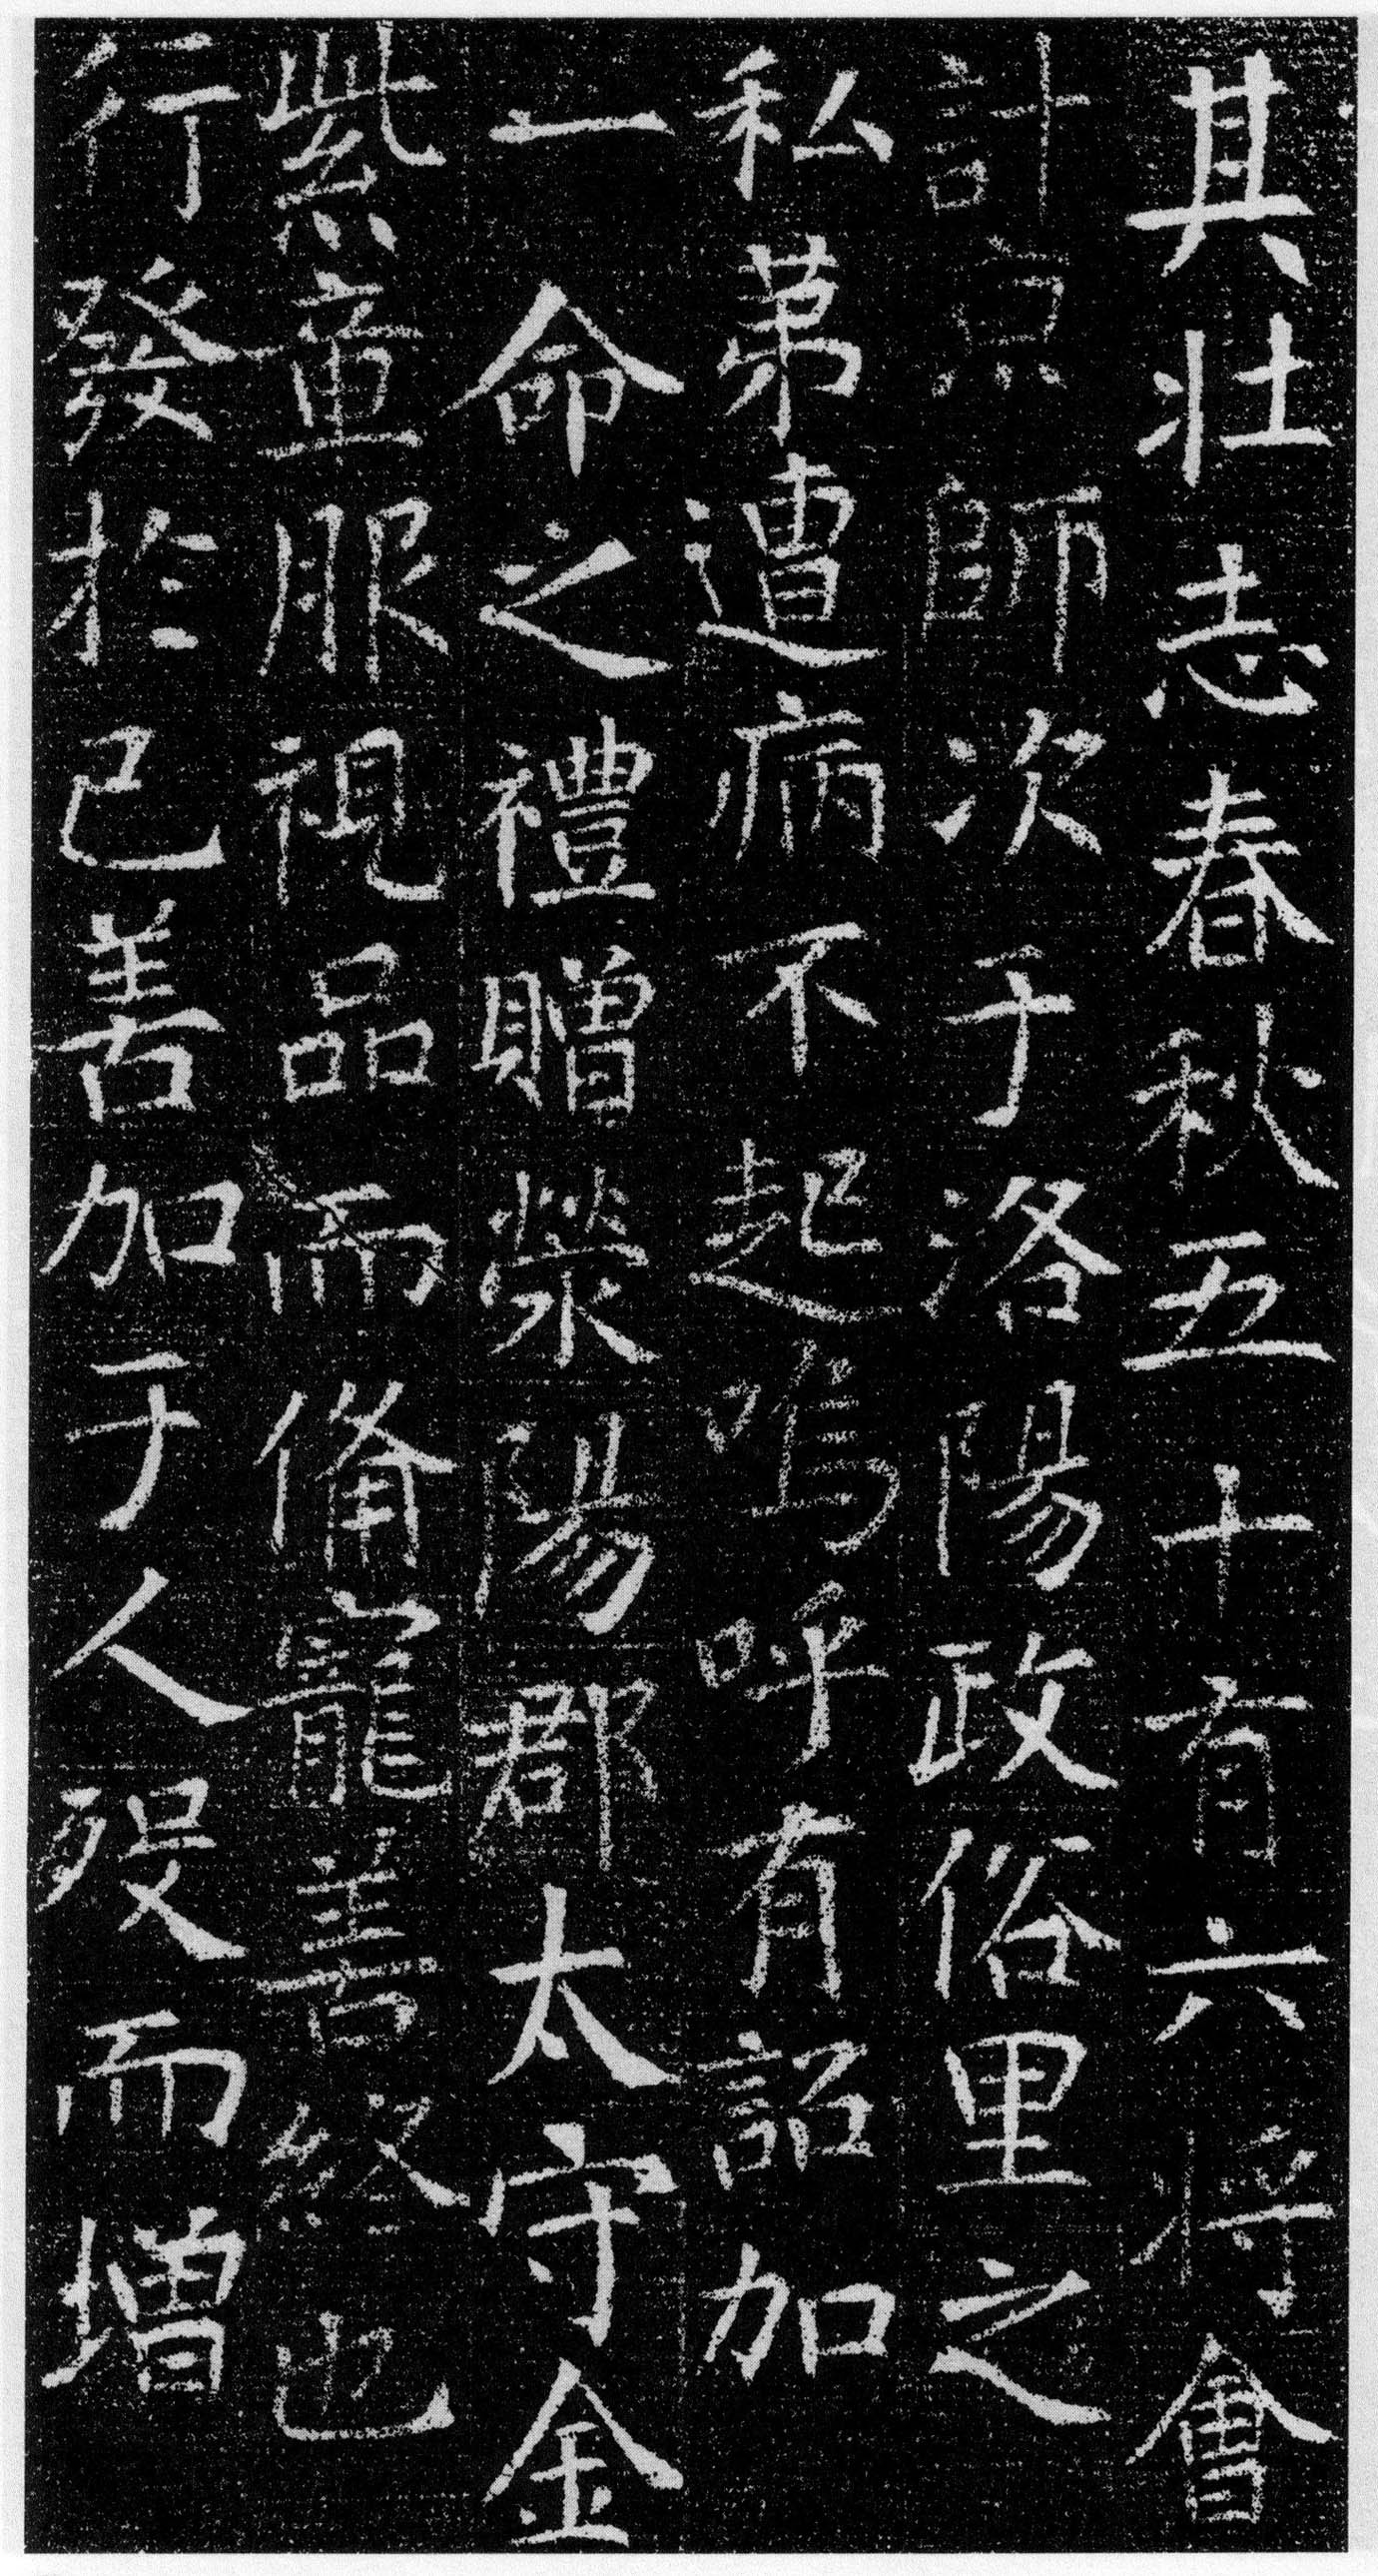 其壯志春秋五十有六將會
計京師次于洛陽政俗里之
私第遭病不起嗚呼有詔加
一命之禮贈滎陽郡太守金
紫章服視品而俻寵善終也
行發於己善加于人歿而增